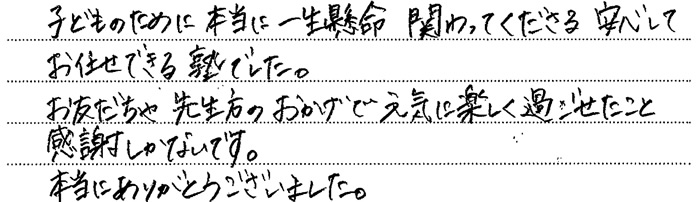 子どものために本当に一生懸命 関わってくださる 安心して
お任せできる塾でした。
お友だちや 先生方の おかげで 元気に楽しく過ごせたこと
感謝しかないです。
本当にありがとうございました。